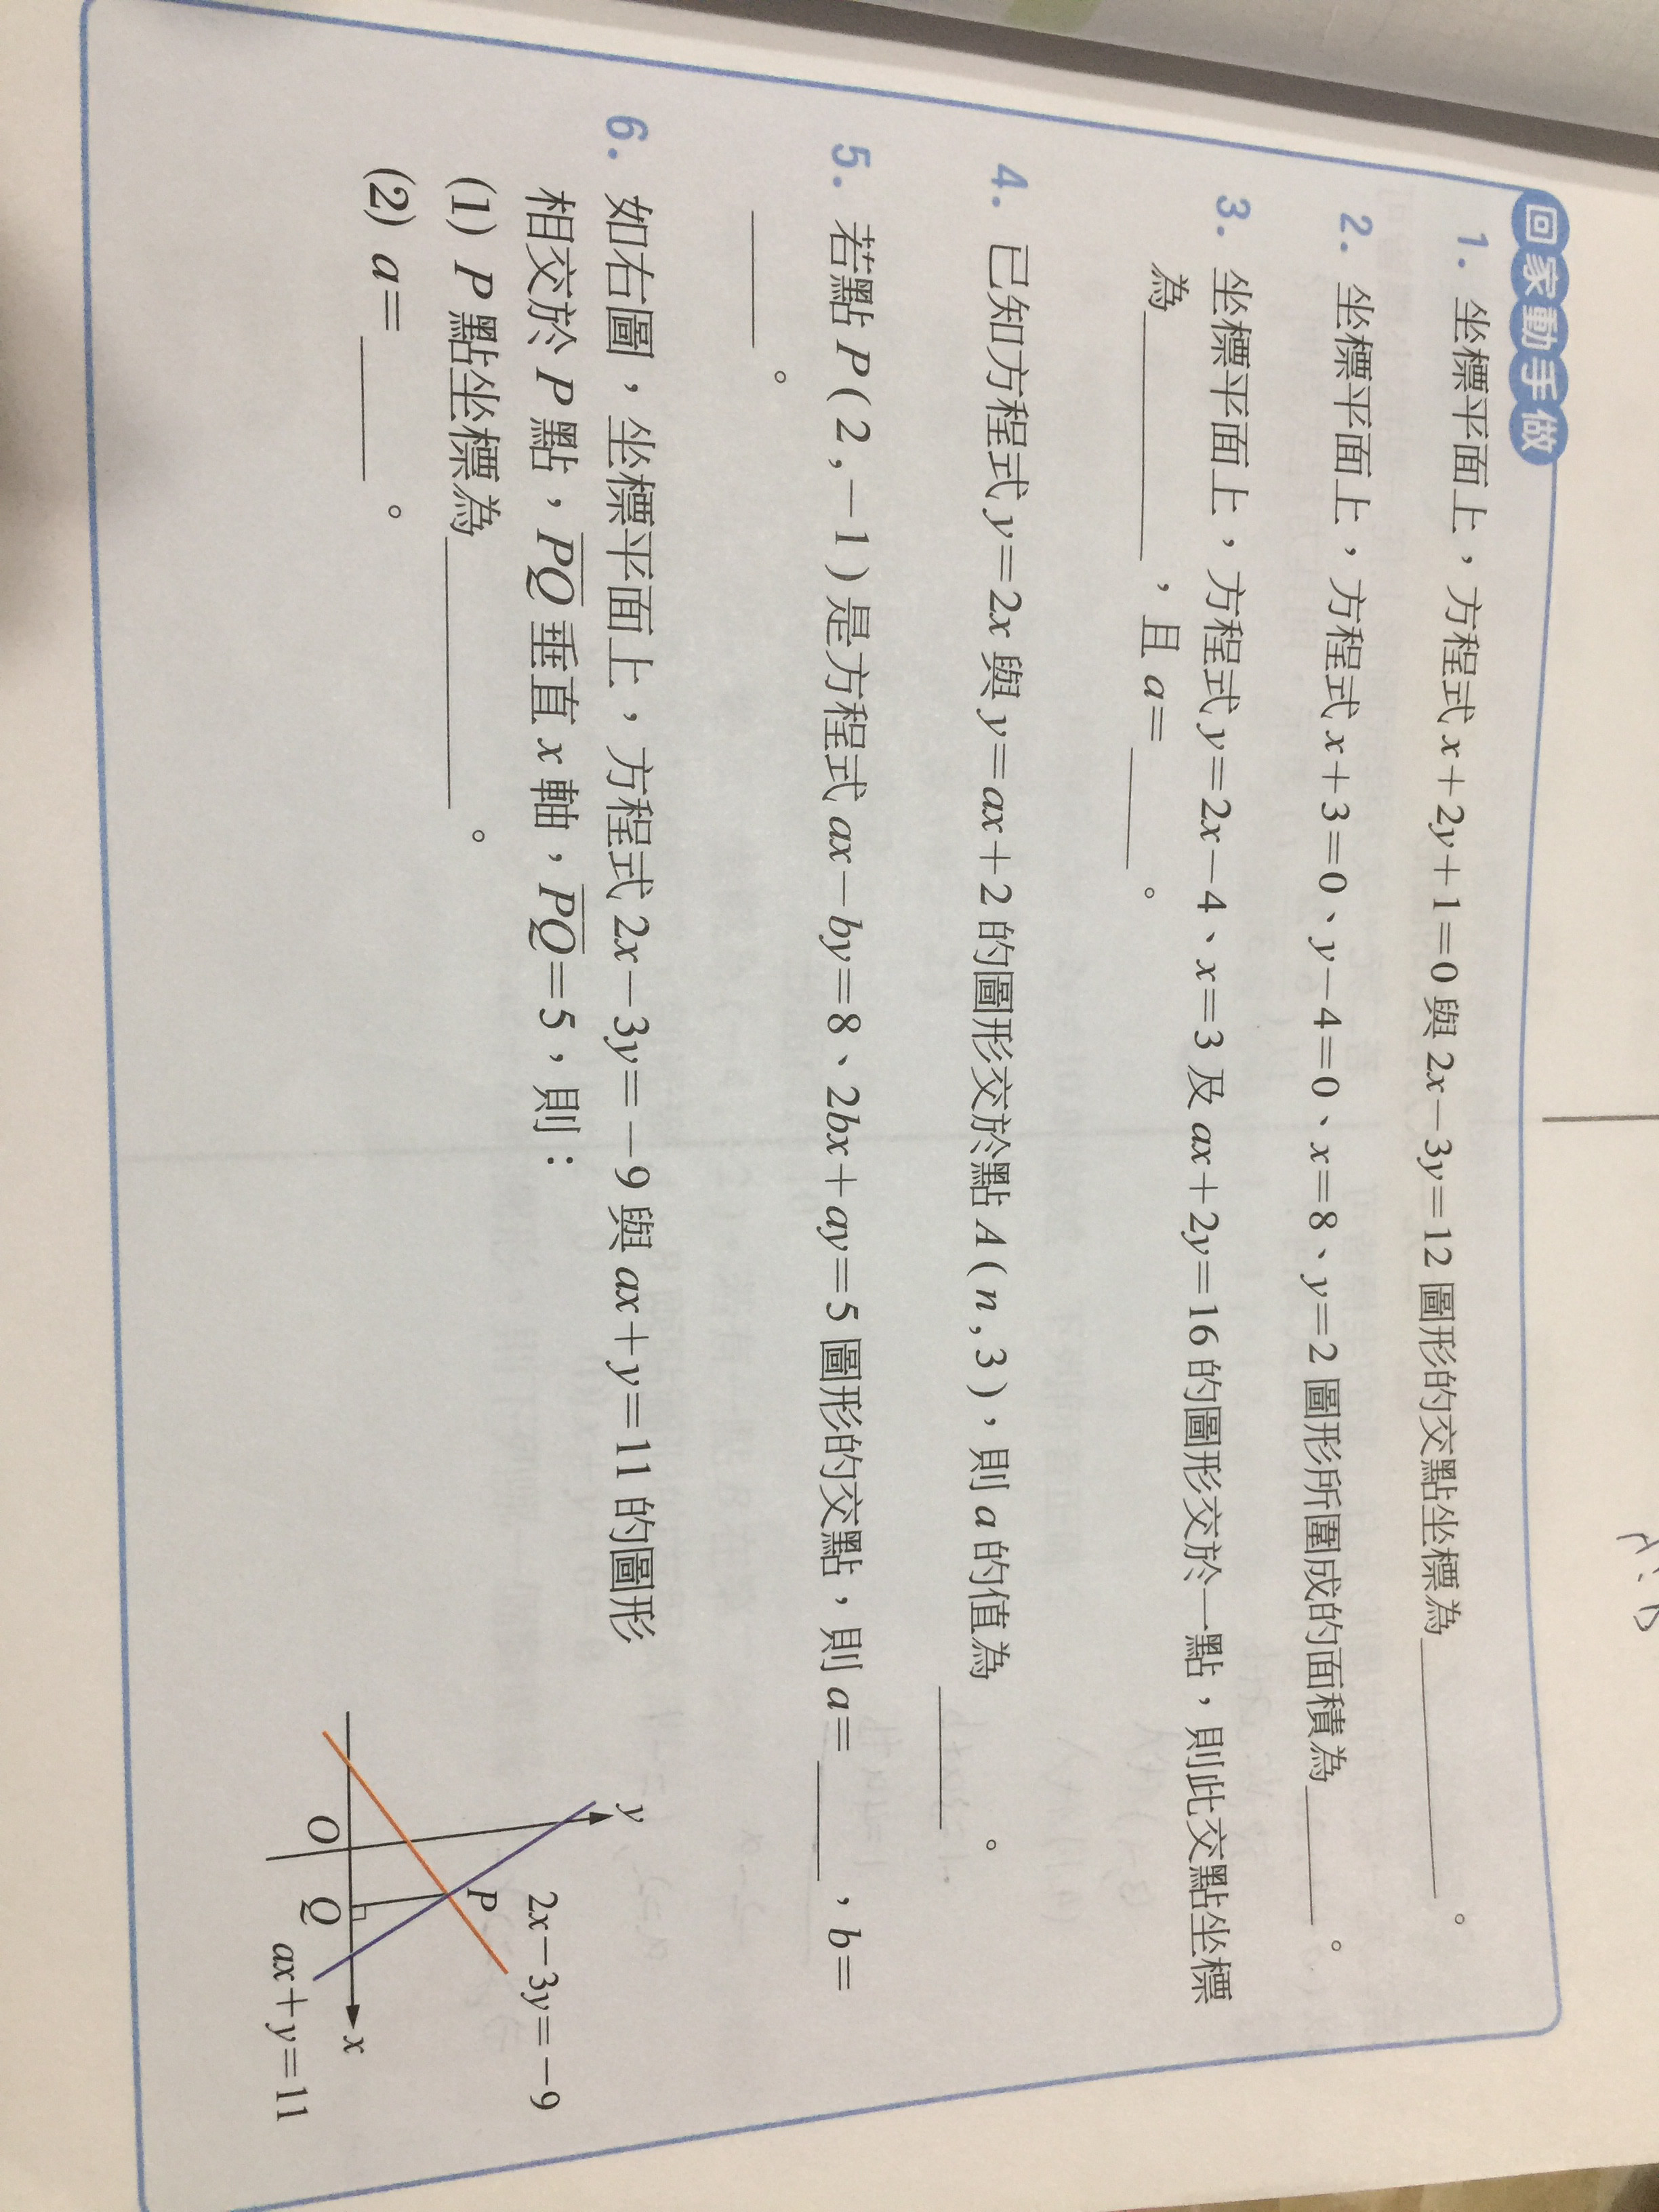 回家動手做
1. 坐標平面上，方程式 x＋2y＋1＝0 與 2x－3y＝12 圖形的交點坐標為＿＿＿＿＿＿。
2. 坐標平面上，方程式 x＋3＝0、y－4＝0、x＝8、y＝2 圖形所圍成的面積為＿＿＿。
3. 坐標平面上，方程式 y＝2x－4、x＝3 及 ax＋2y＝16 的圖形交於一點，則此交點坐標
為＿＿＿＿＿＿，且 a＝＿＿＿。
4. 已知方程式 y＝2x 與 y＝ax＋2 的圖形交於點 A(n , 3)，則 a 的值為＿＿＿。
5. 若點 P(2 , －1) 是方程式 ax－by＝8、2bx＋ay＝5 圖形的交點，則 a＝＿＿＿，b＝
＿＿＿。
6. 如右圖，坐標平面上，方程式 2x－3y＝－9 與 ax＋y＝11 的圖形
相交於 P 點，PQ 垂直 x 軸，PQ＝5，則：
(1) P 點坐標為＿＿＿＿＿＿。
(2) a＝＿＿＿。
y
2x－3y＝－9
P
O
Q
x
ax＋y＝11